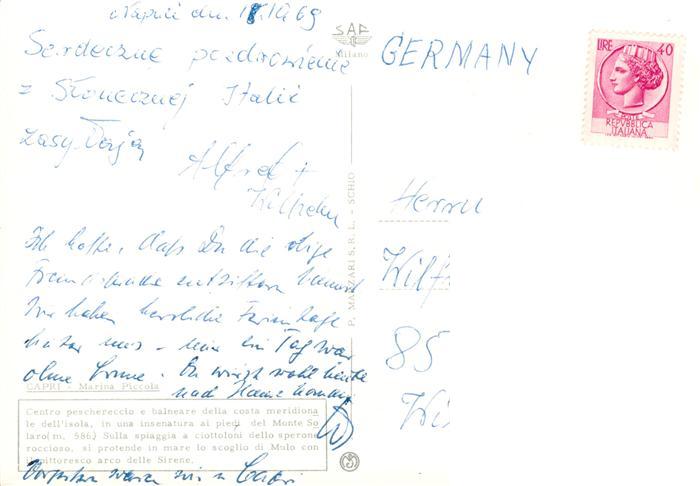 Napoli dn. 1969
SAF
Milano
GERMANY
LIRE 40
POSTE
REPVBBLICA
ITALIANA
Serdeczne pozdrowienie
z Słonecznej Italii
zasyłają
Alfred +
Wilhelm
Herrn
Wilf
85
P. MARZARI S.R.L. - SCHIO
Ich hoffe, daß Du die obige
entziffern kannst
Wir haben herrliche Ferientage
hinter uns – nur ein Tag war
ohne Sonne. Du wirst wohl heute
nach Hause kommen
CAPRI - Marina Piccola
Centro peschereccio e balneare della costa meridiona
le dell'isola, in una insenatura ai piedi del Monte So
laro (m. 586.) Sulla spiaggia a ciottoloni dello sperone
roccioso, si protende in mare lo scoglio di Mulo con
il pittoresco arco delle Sirene.
Vorgestern waren wir in Capri